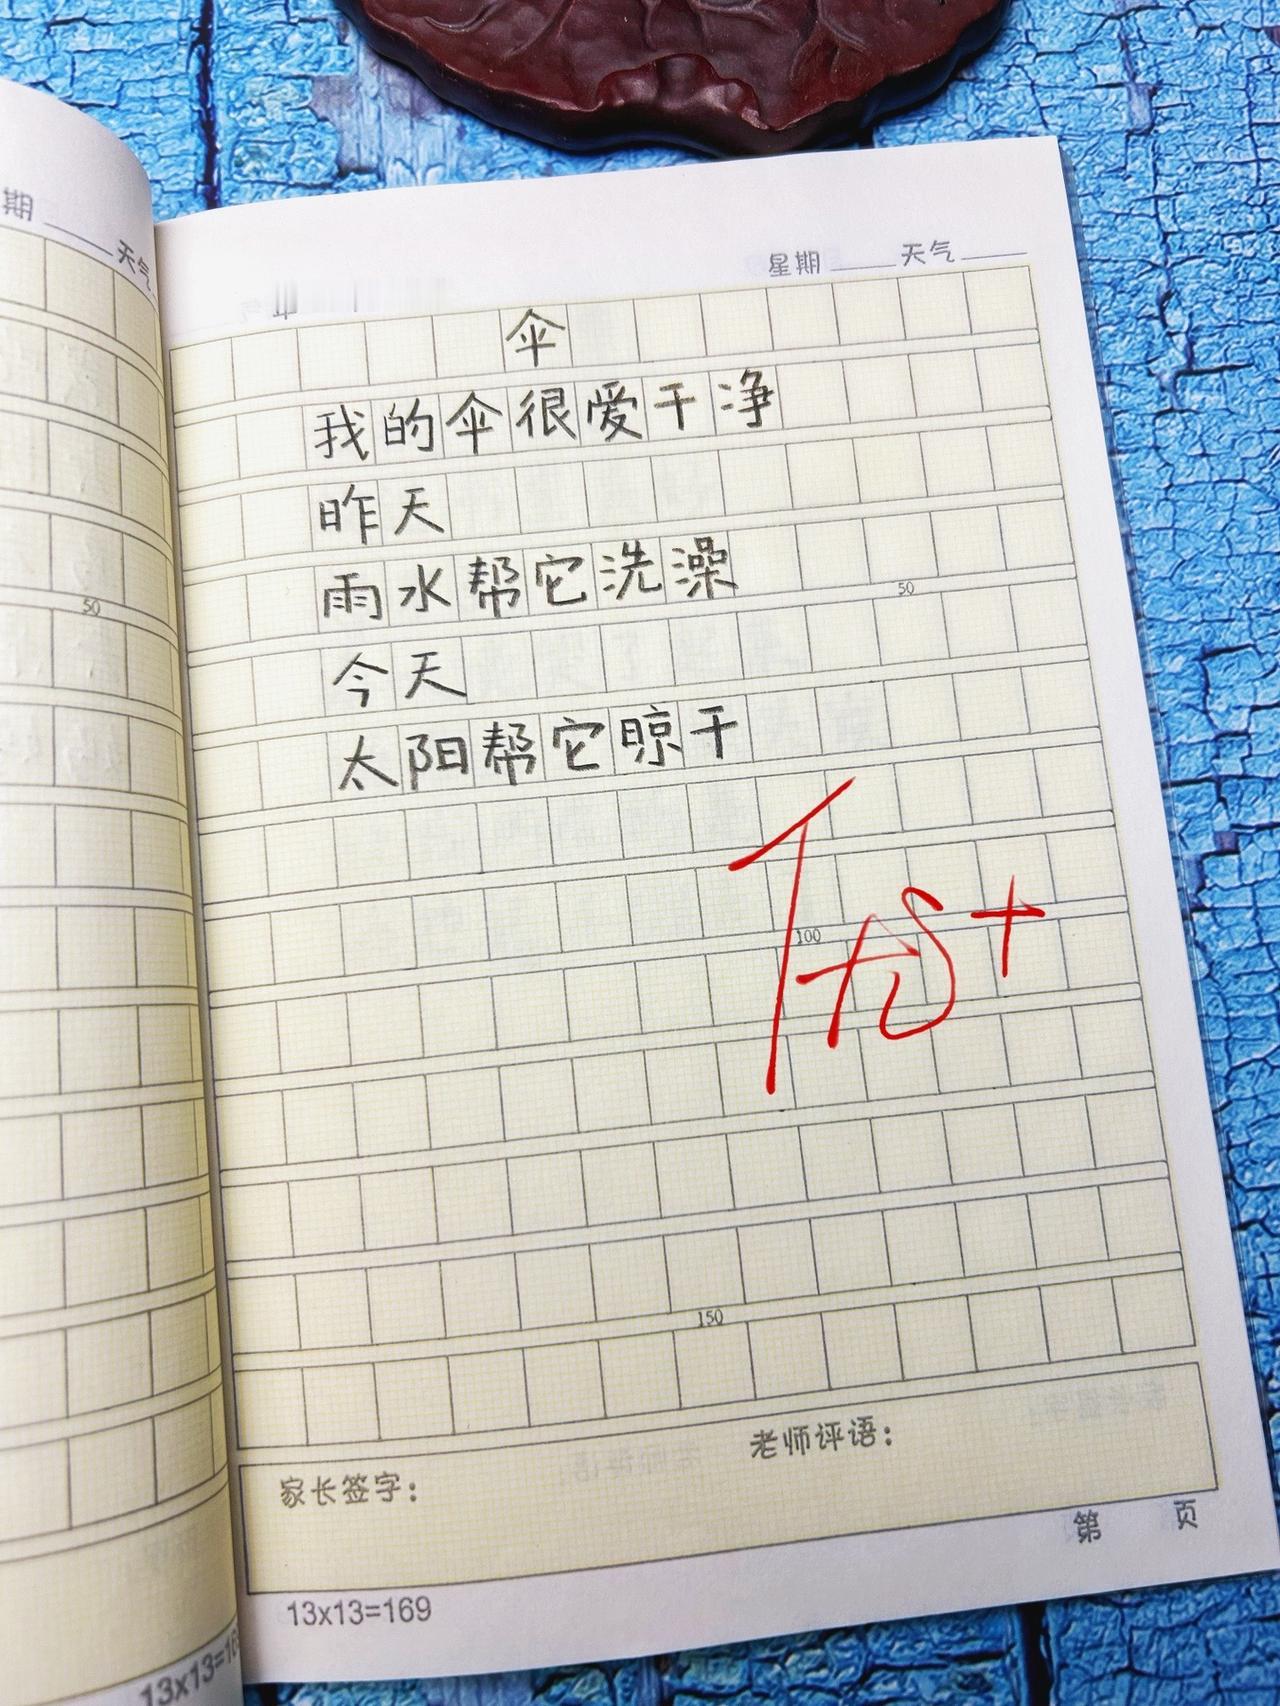 期
天气
星期 天气
伞
我的伞很爱干净
昨天
雨水帮它洗澡
50
50
今天
太阳帮它晾干
100
优+
150
老师评语：
家长签字：
第 页
13x13=169
13x13=16